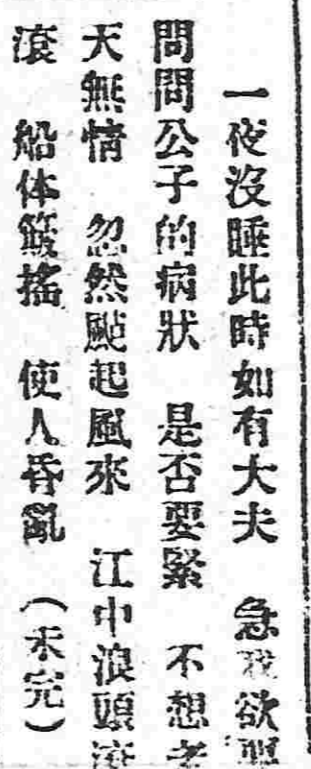 一夜沒睡此時如有大夫　急我欲
問問公子的病狀　是否要緊　不想老
天無情　忽然颳起風來　江中浪頭滾
滾　船体簸搖　使人昏亂　（未完）